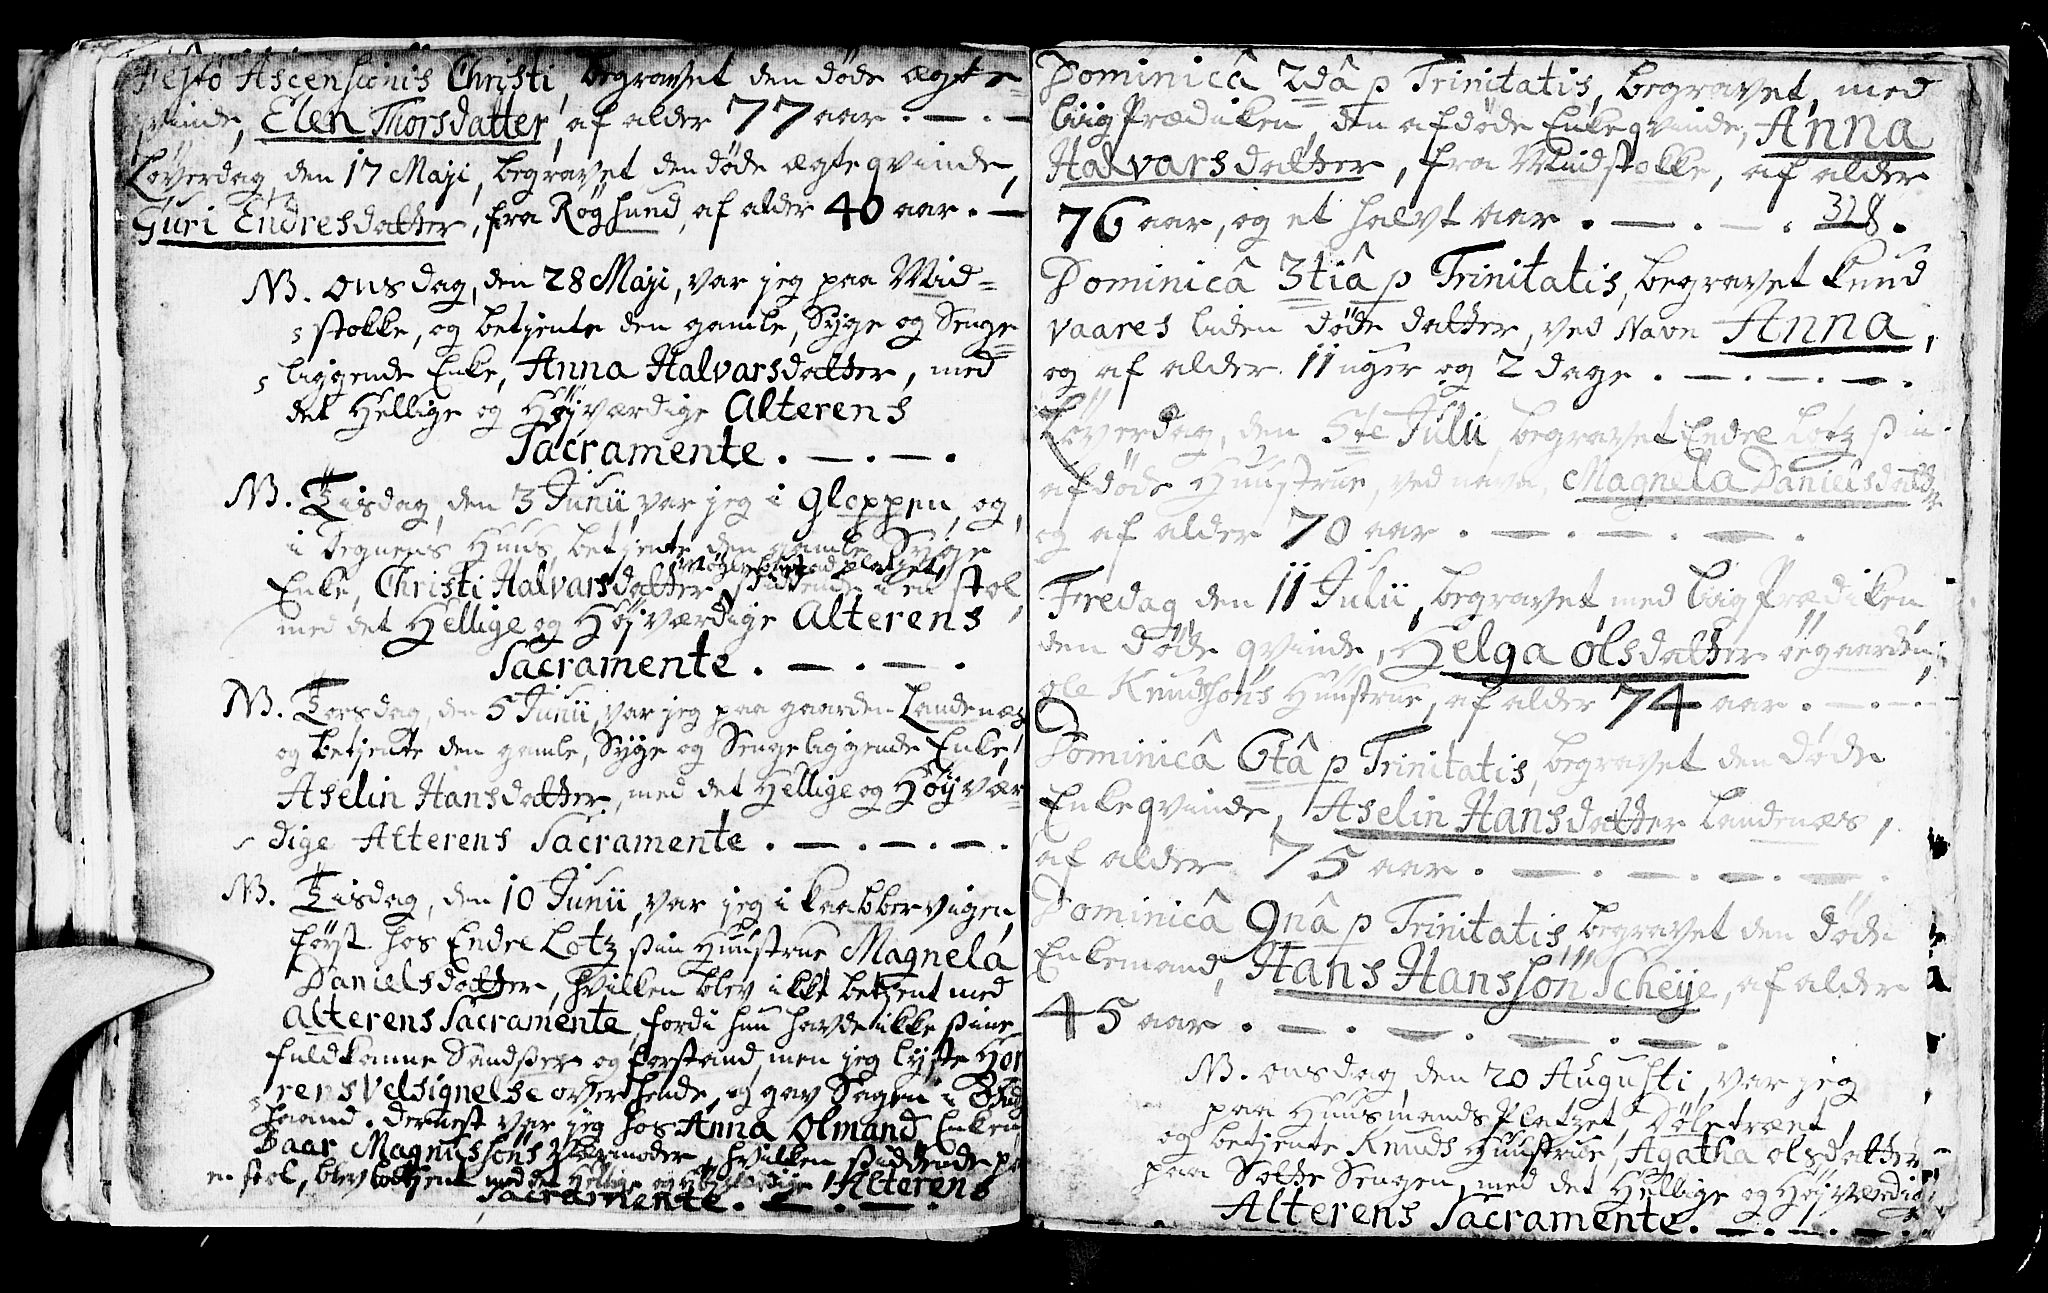 Festo Ascensionis Christi, begravet den døde ægte=
qvinde, Elen Thorsdatter, af alder 77 aar. — . —
Løverdag, den 17 Maji, begravet den døde ægteqvinde,
Guri Endresdatter, fra Røgsund, af alder 40 aar. —
NB. Onsdag, den 28 Maji, var jeg paa Mid=
stokke, og betjente den gamle, Syge og Senge=
liggende Enke, Anna Halvarsdatter, med
det Hellige og Høyværdige Alterens
Sacramente. — . — .
NB. Tisdag, den 3 Junii, var jeg i Gloppen, og,
i Degnens Huus, betjente den gamle Syge
Enke, Christi Halvarsdatter, siddende i en stol,
med det Hellige og Høyværdige Alterens
Sacramente. — . — .
NB. Torsdag, den 5 Junii, var jeg paa gaarden Landenæs
og betjente den gamle, Syge og Sengeliggende Enke,
Aselin Hansdatter, med det Hellige og Høyvær=
dige Alterens Sacramente. — . — . — .
NB. Tisdag, den 10 Junii, var jeg i Kaabbervigen,
først hos Endre Lotz sin Huustrue Magnela
Danielsdatter, hvilken blev ikke betjent med
Alterens Sacramente, fordi hun havde ikke sine
fuldkomne Sandser og forstand, men jeg lyste Her=
rens Velsignelse over hende, og gav Sagen i Guds
haand. Dernest var jeg hos Anna Olmand, Enken,
Baar Magnussøns Værmoder, hvilken siddende paa
en stol, blev betjent med det Hellige og Høyværdige Alterens
Sacramente. — . — .
Dominicâ 2dâ p Trinitatis, begravet, med
Liig Prædiken, den afdøde Enkeqvinde, Anna
Halvarsdatter, fra Midstokke, af alder
76 aar, og et halvt aar. — . — . 318.
Dominicâ 3tiâ p Trinitatis, begravet Knud
Vaares liden døde datter, ved Navn Anna,
og af alder 11 uger og 2 dage. — . — . — .
Løverdag, den 5te Julii, begravet Endre Lotz sin
afdøde Huustrue, ved navn, Magnela Danielsdatter
og af alder 70 aar. — . — . — .
Fredag den 11 Julii, begravet, med Liig Prædiken,
den døde qvinde, Helga Olsdatter øegaarden,
Ole Knudssøns Huustrue, af alder 74 aar. — . — . —
Dominicâ 6tâ p Trinitatis, begravet den døde
Enkeqvinde, Aselin Hansdatter Landenæs,
af alder 75 aar. — . — . — . — .
Dominicâ 9nâ p Trinitatis, begravet den døde
Enkemand, Hans Hanssøn Scheye, af alder
45 aar. — . — . — . — .
NB. Onsdag den 20 Augusti, var jeg
paa Huusmands Platzet, Døletræet,
og betjente Knuds Huustrue, Agatha Olsdatter
paa Sotte Sengen, med det Hellige og Høyværdige
Alterens Sacramente. — . — . — .